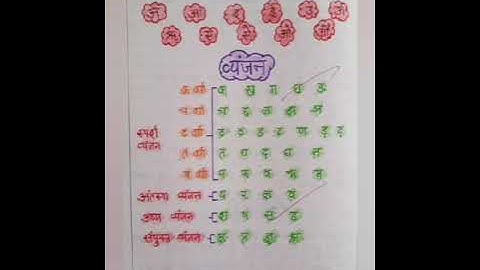 अ आ इ ई उ ऊ
ऋ ए ऐ ओ औ
व्यंजन
क वर्ग क ख ग घ ङ
च वर्ग च छ ज झ ञ
स्पर्श व्यंजन ट वर्ग ट ठ ड ढ ण ड़ ढ़
त वर्ग त थ द ध न
प वर्ग प फ ब भ म
अंतस्थ व्यंजन य र ल व
ऊष्म व्यंजन श ष स ह
संयुक्त व्यंजन क्ष त्र ज्ञ श्र